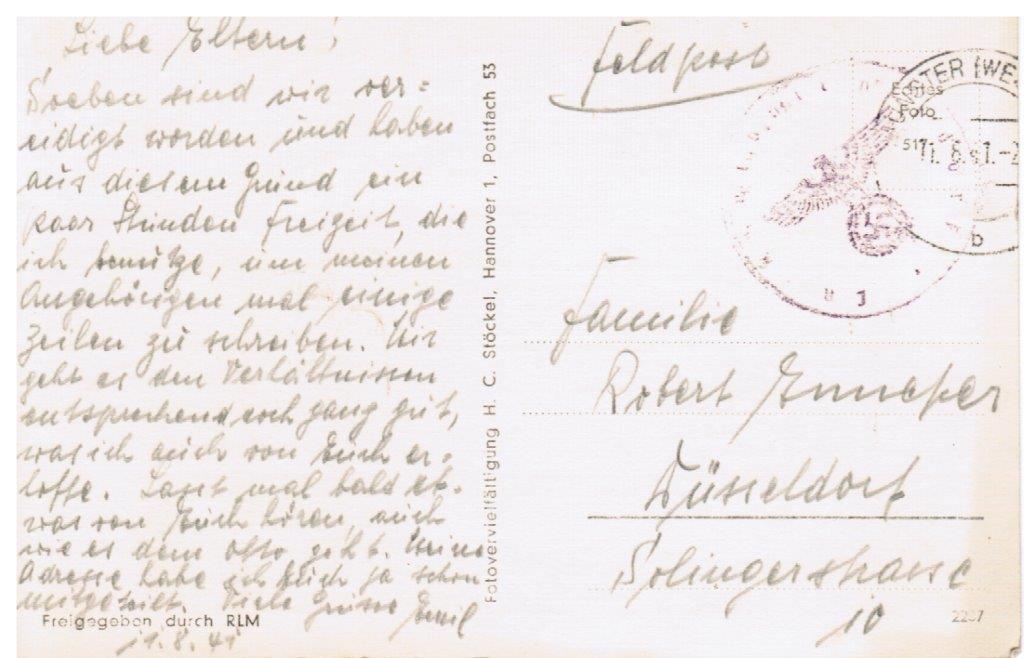 Liebe Eltern!
Soeben sind wir ver=
eidigt worden und haben
aus diesem Grund ein
paar Stunden Freizeit, die
ich benütze, um meinen
Angehörigen mal einige
Zeilen zu schreiben. Mir
geht es den Verhältnissen
entsprechend noch ganz gut,
was ich auch von Euch er-
hoffe. Lasst mal bald et-
was von Euch hören, auch
wie es dem Otto geht. Meine
Adresse habe ich Euch ja schon
mitgeteilt. Viele Grüsse Emil
Freigegeben durch RLM
11.8.41
Fotovervielfältigung H. C. Stöckel, Hannover 1, Postfach 53
Feldpost
Echtes
Foto
517
MÜNSTER (WE
11. 8. 41.-
b
Familie
Robert Enneper
Düsseldorf
Solingerstrasse
10
2207